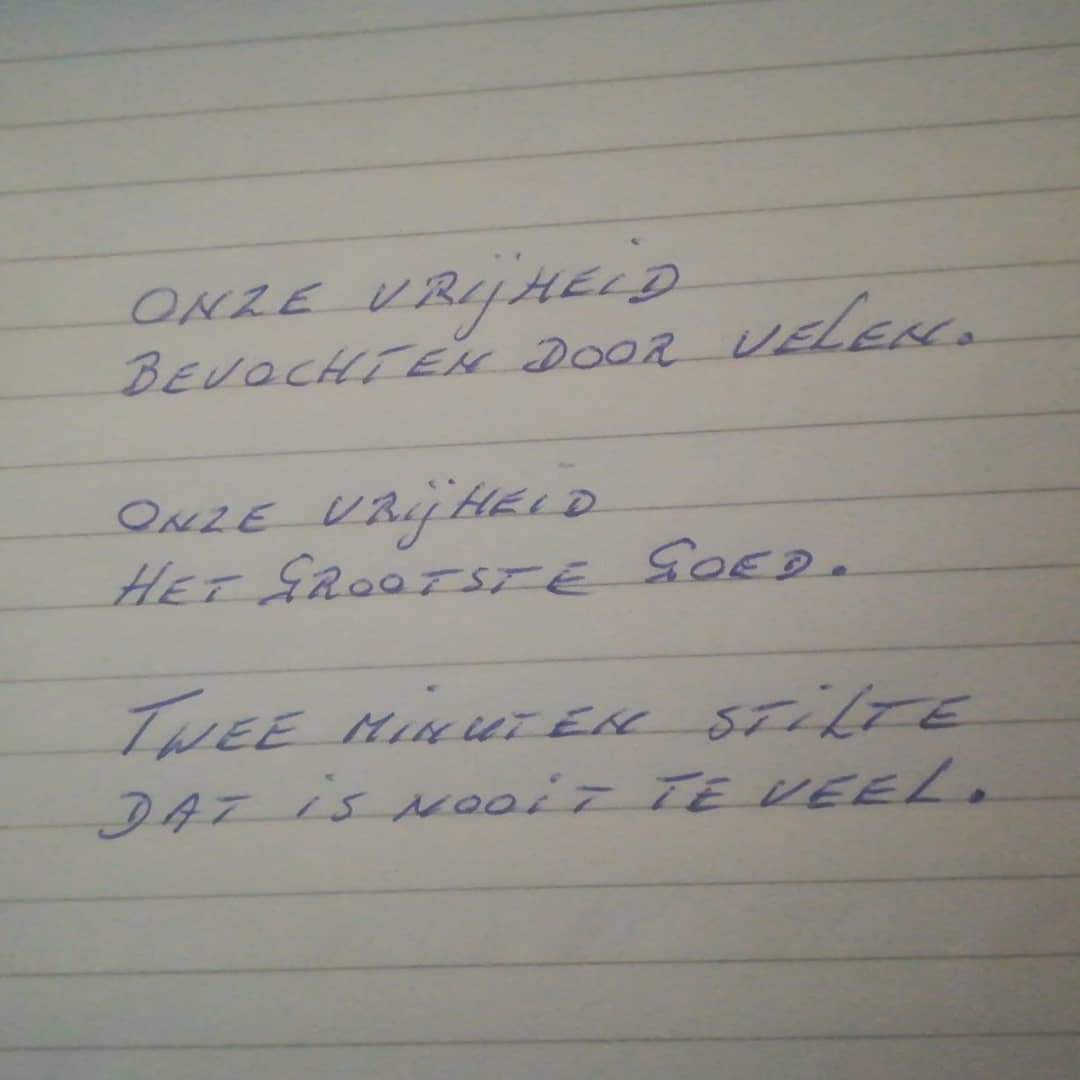 ONZE VRIJHEID
BEVOCHTEN DOOR VELEN.
ONZE VRIJHEID
HET GROOTSTE GOED.
TWEE MINUTEN STILTE
DAT IS NOOIT TE VEEL.